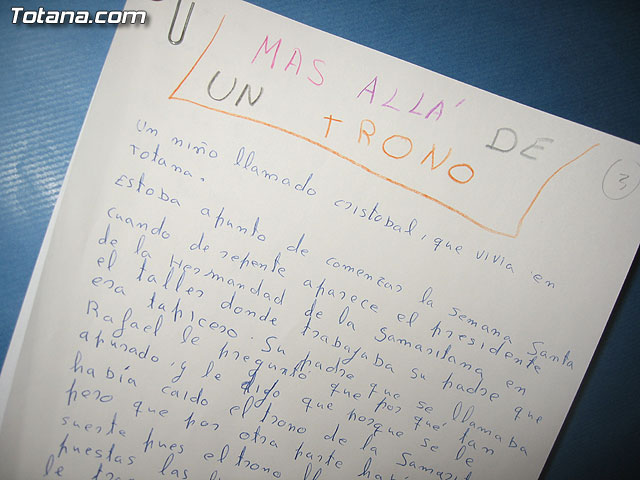 Totana.com
MAS ALLÁ DE
UN TRONO
3
Un niño llamado cristobal, que vivia en
Totana.
Estoba apunto de comenzar la semana santa
cuando de repente aparece el presidente
de la Hermandad de la Samaritana en
el taller donde trabajaba su padre que
era tapicero. Su padre que se llamaba
Rafael le preguntó que por qué tan
apurado, y le dijo que porque se le
había caido el trono de la Samarit
pero que por otra parte habí
suerte pues el trono ll
puestas las
le tra